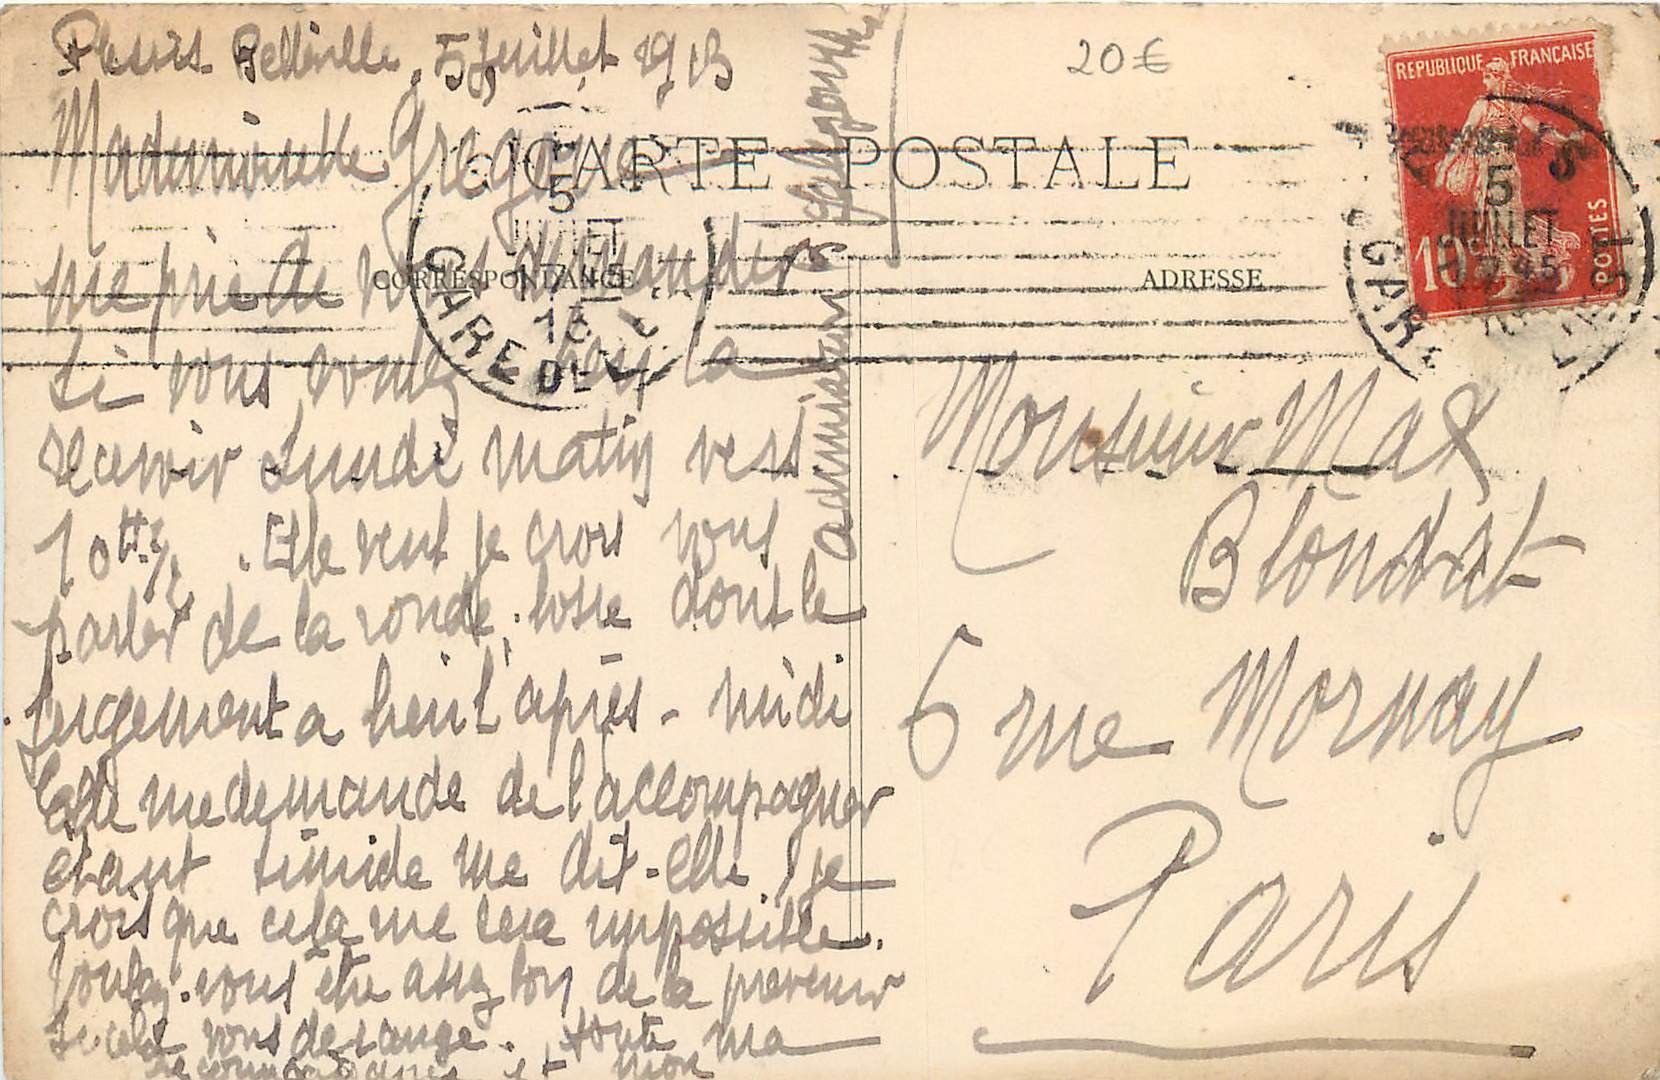 Plessis Belleville, 5 Juillet 1913
20€
REPUBLIQUE FRANÇAISE
10c
POSTES
CARTE POSTALE
CORRESPONDANCE
ADRESSE
5
JUILLET
13
GARE DE L
5
JUILLET
GARE
Mademoiselle
me prie de vous demander
si vous voulez bien la
recevoir Lundi matin vers
10h½. Elle veut je crois vous
parler de la ronde-bosse dont le
jugement a lieu l'après-midi
Elle me demande de l'accompagner
étant timide me dit-elle, je
crois que cela me sera impossible.
Voulez-vous être assez bon de la prévenir
si cela vous dérange. toute ma
reconnaissance et mon
admiration
Monsieur Max
Blondat
6 rue Mornay
Paris